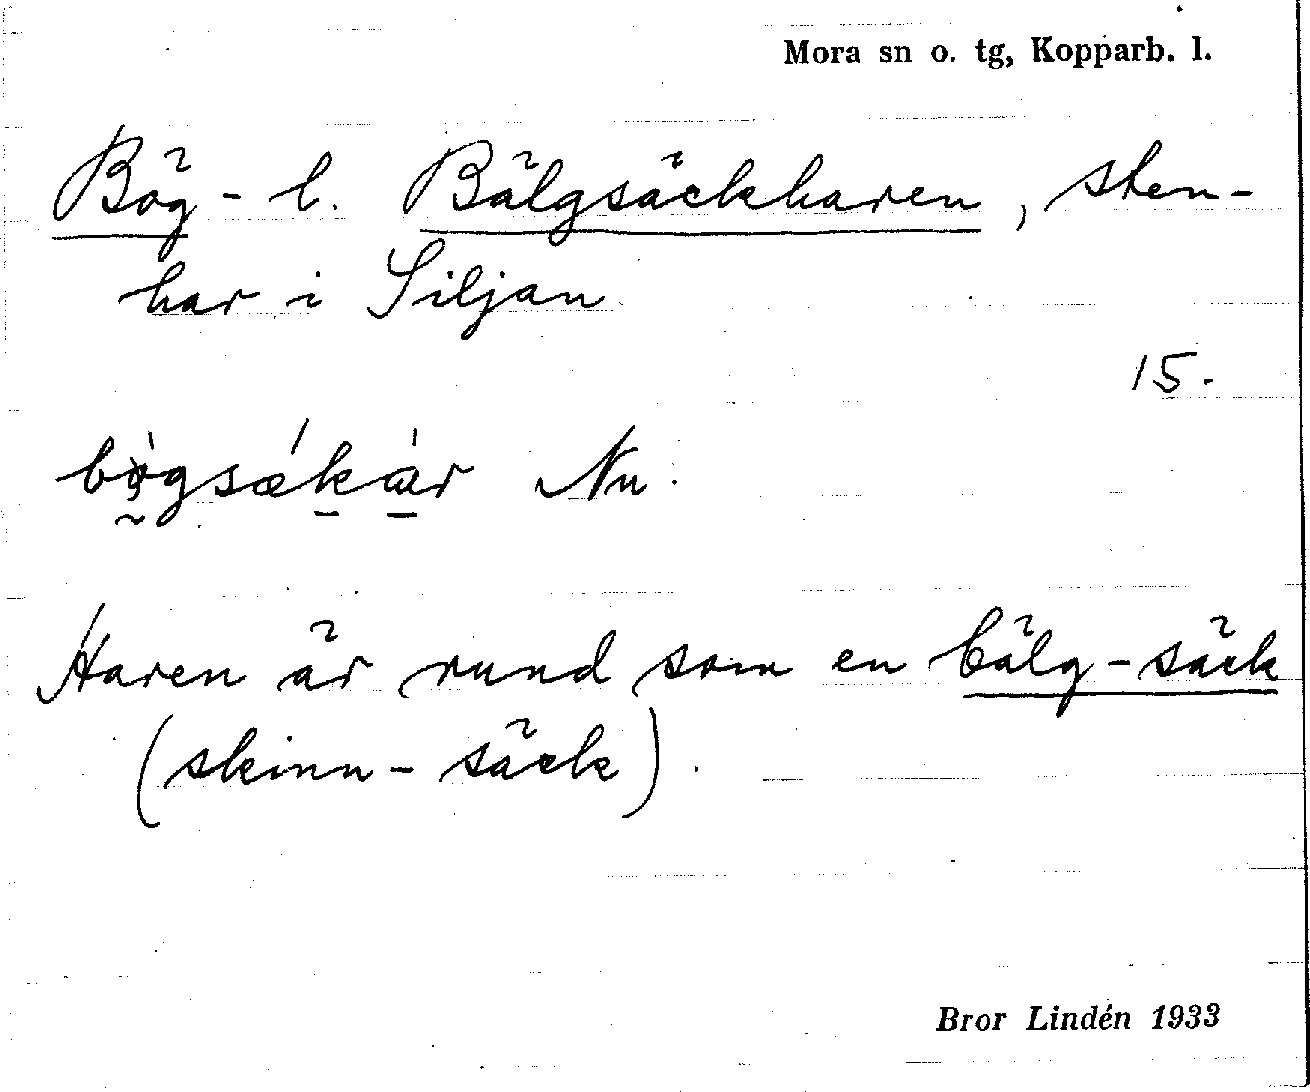 Mora sn o. tg, Kopparb. l.
Bög- l. Bälgsäckharen, sten-
har i Siljan
15.
Nu.
Haren är rund som en bälg-säck
(skinn-säck).
Bror Lindén 1933